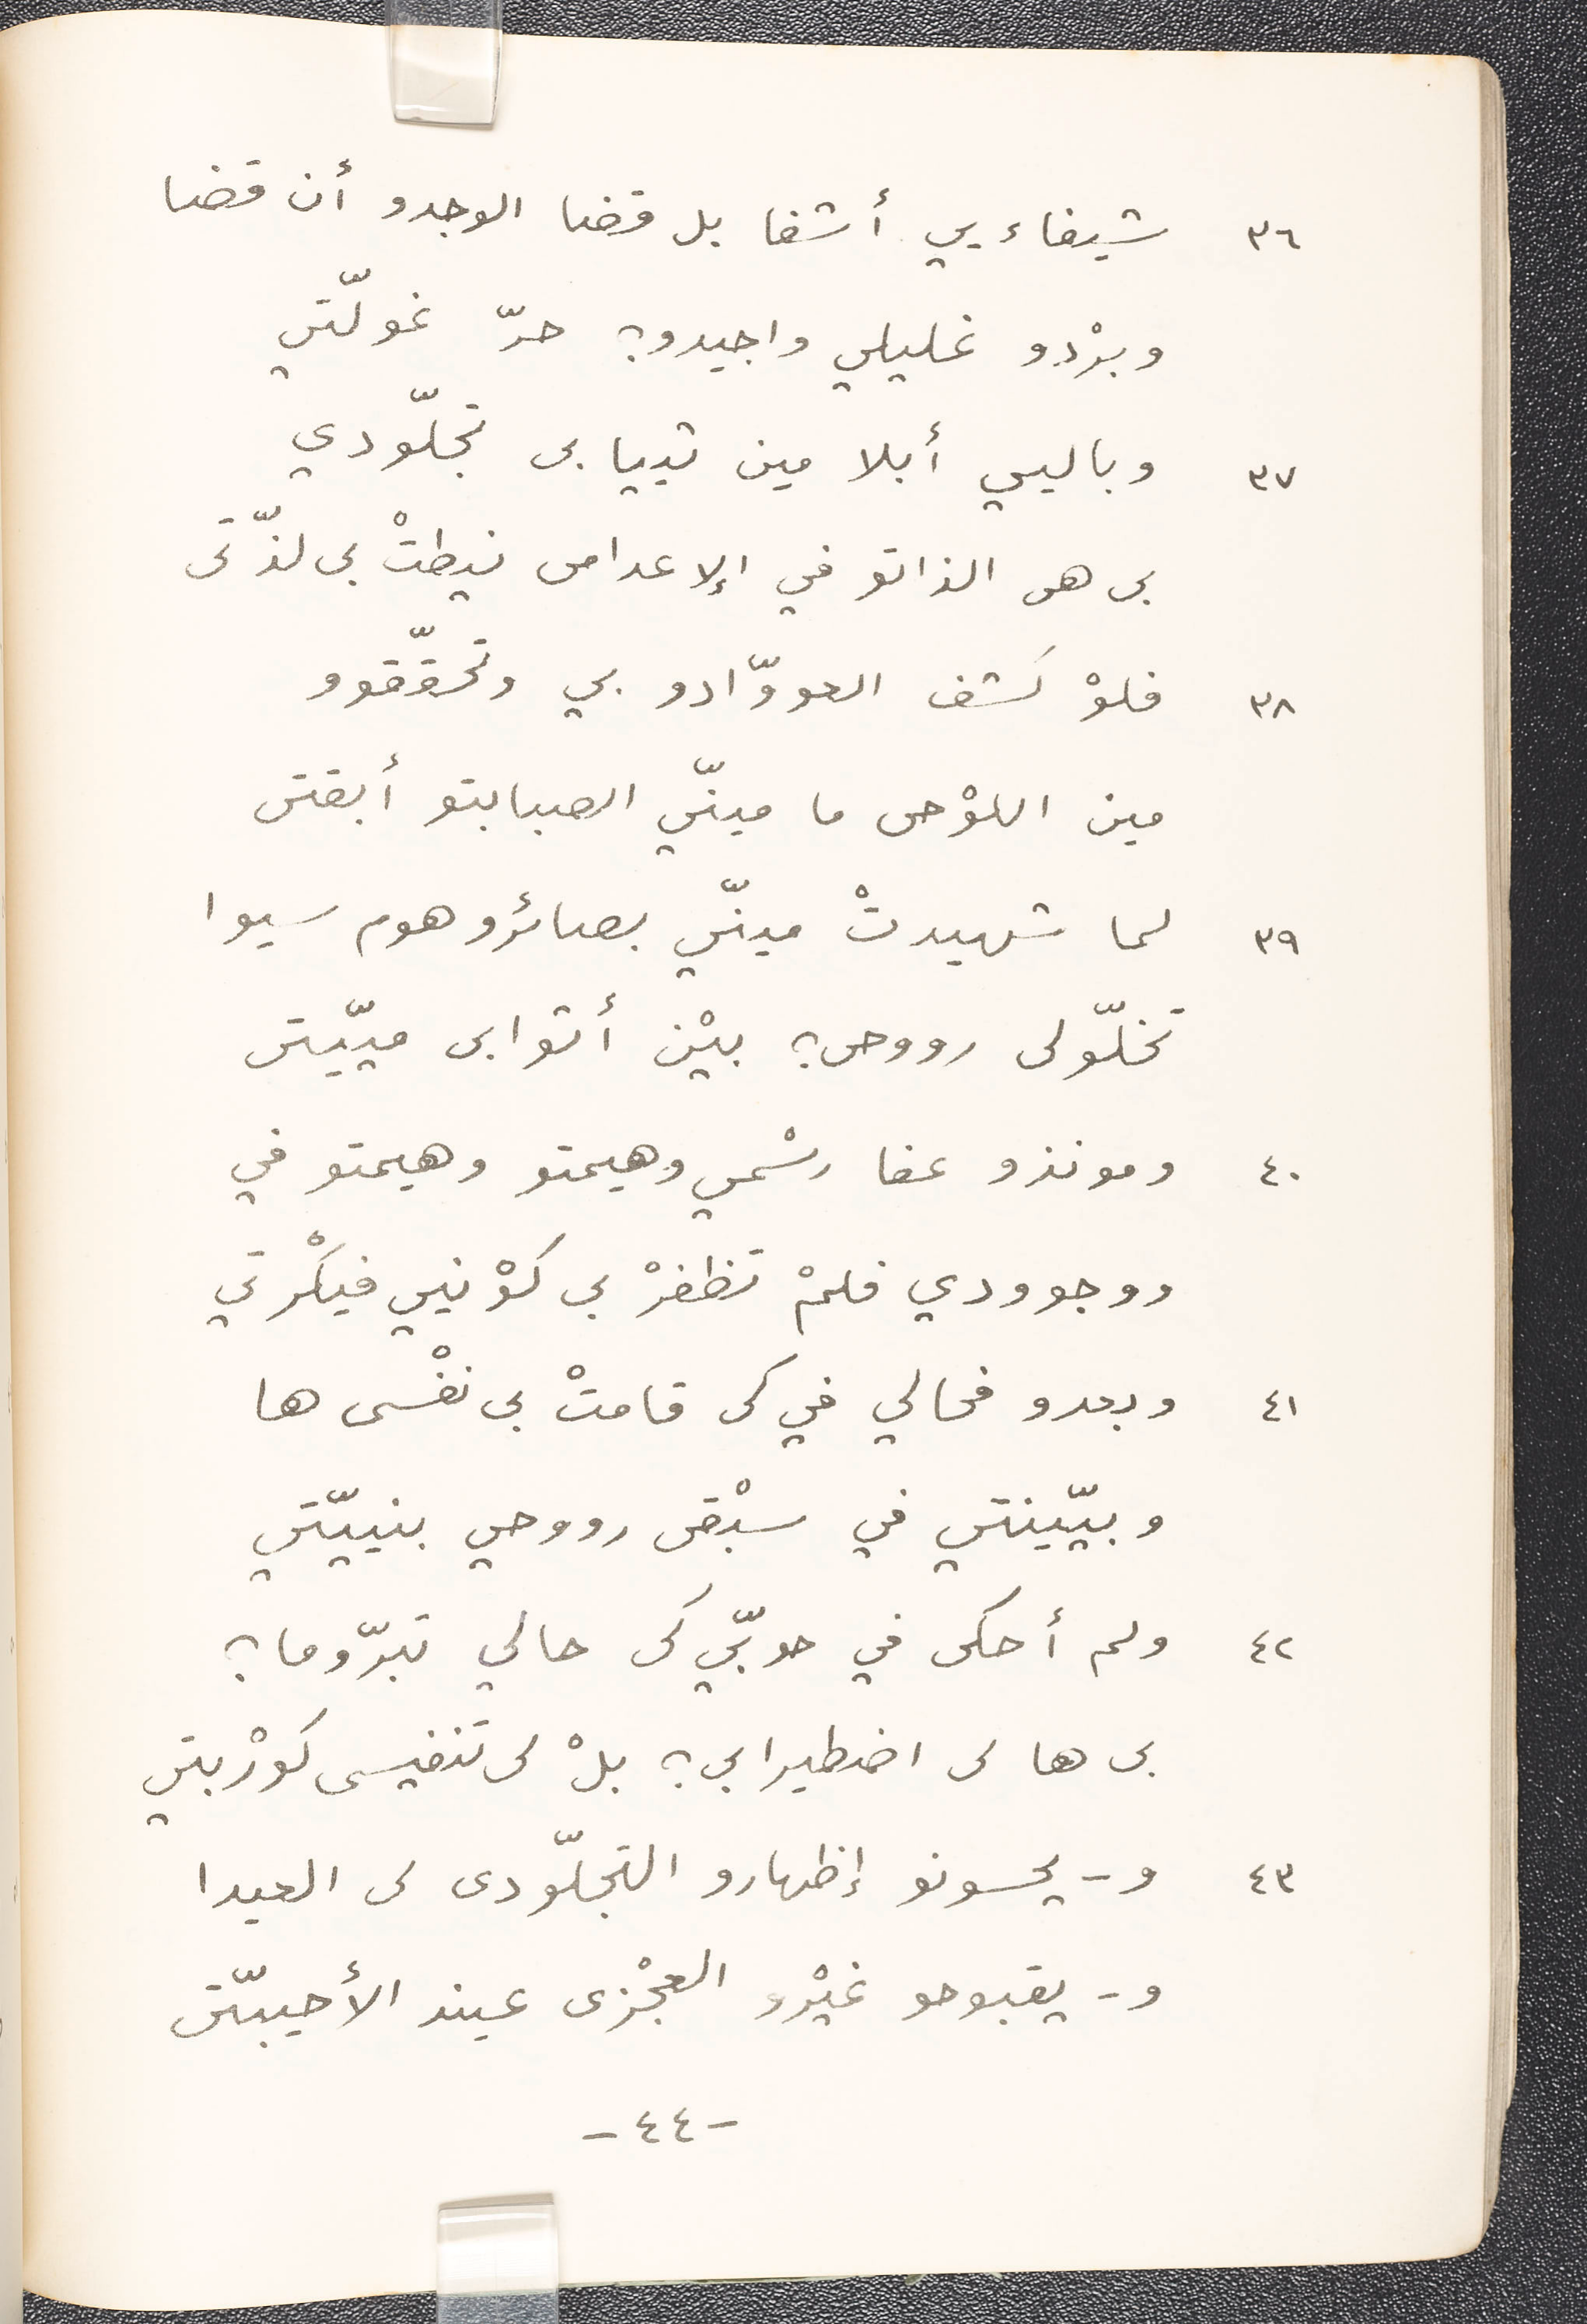 ٣٦ شيفاءيي أشفا بل قضا الوجدو أن قضا
وبرْدو غليلي واجيدو؟ حرّ غولّتي
٣٧ وباليي أبلا مين ثييابى تجلّودي
بى هى الذاتو في الإعدامى نيطتْ بى لذّتى
٣٨ فلوْ كشف العووّادو بي وتحقّقوو
مين اللوْحى ما مينّي الصبابتو أبقتى
٣٩ لما شهيدتْ مينّي بصائرو هوم سيوا
تخلّولى رووحى؟ بيْن أثوابى ميّيتى
٤٠ ومونذو عفا رسْمي وهيمتو وهيمتو في
ووجوودي فلمْ تظفرْ بى كوْنيي فيكْرتي
٤١ وبعدو فحالي في كى قامتْ بى نفْسى ها
وبيّينتي في سبْقى رووحي بنييّتي
٤٢ ولم أحكى في حوبّي كى حالي تبرّوما؟
بى ها لى اضطيرابي؟ بلْ لى تنفيسى كورْبتي
٤٣ و- يحسونو إظهارو التجلّودى لى العيدا
و- يقبوحو غيْرو العجْزى عيند الأحيببّتى
-٤٤-